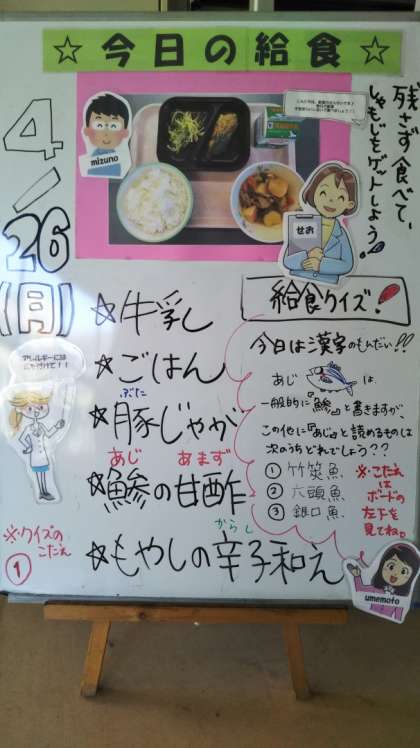 ☆今日の給食☆
4/26(月)
mizuno
残さず食べて、
しゃもじをゲットしよう♪
せお
☆牛乳
☆ごはん
ぶた
☆豚じゃが
あじ あまず
☆鰺の甘酢
からし
☆もやしの辛子和え
給食クイズ!
今日は漢字のもんだい!!
あじ は、
一般的に『鰺』と書きますが、
この他に『あじ』と読めるものは
次のうちどれでしょう??
①竹筴魚
②六頭魚
③銀口魚
※こたえ
は
ボードの
左下を
見てね。
umemoto
アレルギーには
気を付けて!!
※クイズの
こたえ
①